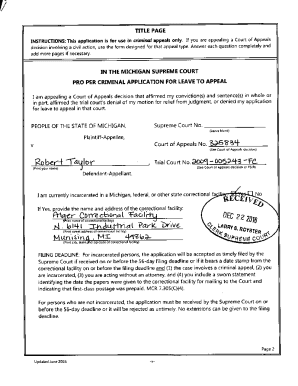 TITLE PAGE
INSTRUCTIONS: This application is for use in criminal appeals only. If you are appealing a Court of Appeals
decision involving a civil action, use the form designed for that appeal type. Answer each question completely and
add more pages if necessary.
IN THE MICHIGAN SUPREME COURT
PRO PER CRIMINAL APPLICATION FOR LEAVE TO APPEAL
I am appealing a Court of Appeals decision that affirmed my conviction(s) and sentence(s) in whole or
in part, affirmed the trial court's denial of my motion for relief from judgment, or denied my application
for leave to appeal in that court.
PEOPLE OF THE STATE OF MICHIGAN, Supreme Court No.
(Leave blank)
Plaintiff-Appellee,
v Court of Appeals No. 325834
(See Court of Appeals decision)
Robert Taylor Trial Court No. 2009-005243-FC
(Print your name) (See Court of Appeals decision or PSIR)
Defendant-Appellant.
I am currently incarcerated in a Michigan, federal, or other state correctional facility. Yes No
If Yes, provide the name and address of the correctional facility:
Alger Correctional Facility
(Print name of correctional facility)
N 6141 Industrial Park Drive
(Print street address of correctional facility)
Munising, MI 49862
(Print city, state, and zip code of correctional facility)
RECEIVED
DEC 22 2018
LARRY S. ROYSTER
CLERK SUPREME COURT
FILING DEADLINE: For incarcerated persons, the application will be accepted as timely filed by the
Supreme Court if received on or before the 56-day filing deadline or if it bears a date stamp from the
correctional facility on or before the filing deadline and (1) the case involves a criminal appeal, (2) you
are incarcerated, (3) you are acting without an attorney, and (4) you include a sworn statement
identifying the date the papers were given to the correctional facility for mailing to the Court and
indicating that first-class postage was prepaid. MCR 7.305(C)(4).
For persons who are not incarcerated, the application must be received by the Supreme Court on or
before the 56-day filing deadline or it will be rejected as untimely. No extensions can be given to the
filing deadline.
Page 2
Updated June 2016